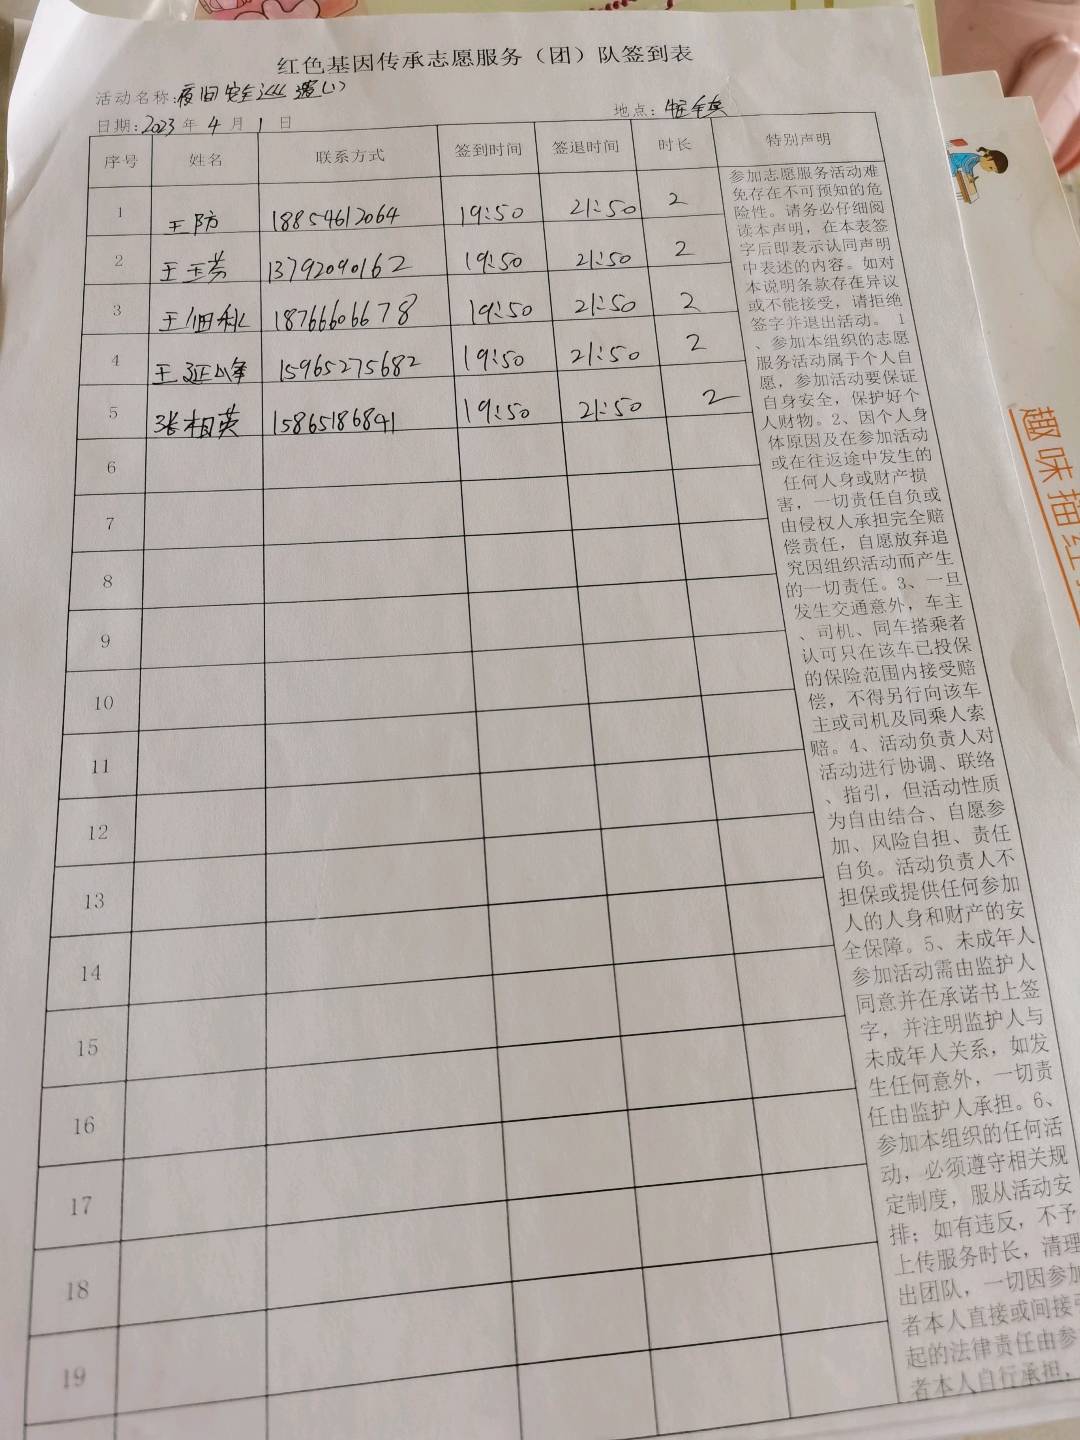 红色基因传承志愿服务（团）队签到表
活动名称：夜间安全巡逻(1)
日期：2023年4月1日 地点：
序号 姓名 联系方式 签到时间 签退时间 时长 特别声明
1 王防 18854612064 19:50 21:50 2
2 王玉芳 13792090162 19:50 21:50 2
3 王佃利 18766606678 19:50 21:50 2
4 王延峰 15965275682 19:50 21:50 2
5 张相英 15865186841 19:50 21:50 2
6
7
8
9
10
11
12
13
14
15
16
17
18
19
参加志愿服务活动难
免存在不可预知的危
险性。请务必仔细阅
读本声明，在本表签
字后即表示认同声明
中表述的内容。如对
本说明条款存在异议
或不能接受，请拒绝
签字并退出活动。 1
、参加本组织的志愿
服务活动属于个人自
愿，参加活动要保证
自身安全，保护好个
人财物。2、因个人身
体原因及在参加活动
或在往返途中发生的
任何人身或财产损
害，一切责任自负或
由侵权人承担完全赔
偿责任，自愿放弃追
究因组织活动而产生
的一切责任。3、一旦
发生交通意外，车主
、司机、同车搭乘者
认可只在该车已投保
的保险范围内接受赔
偿，不得另行向该车
主或司机及同乘人索
赔。4、活动负责人对
活动进行协调、联络
、指引，但活动性质
为自由结合、自愿参
加、风险自担、责任
自负。活动负责人不
担保或提供任何参加
人的人身和财产的安
全保障。5、未成年人
参加活动需由监护人
同意并在承诺书上签
字，并注明监护人与
未成年人关系，如发
生任何意外，一切责
任由监护人承担。6、
参加本组织的任何活
动，必须遵守相关规
定制度，服从活动安
排；如有违反，不予
上传服务时长，清理
出团队，一切因参加
者本人直接或间接引
起的法律责任由参
者本人自行承担，
趣味描红